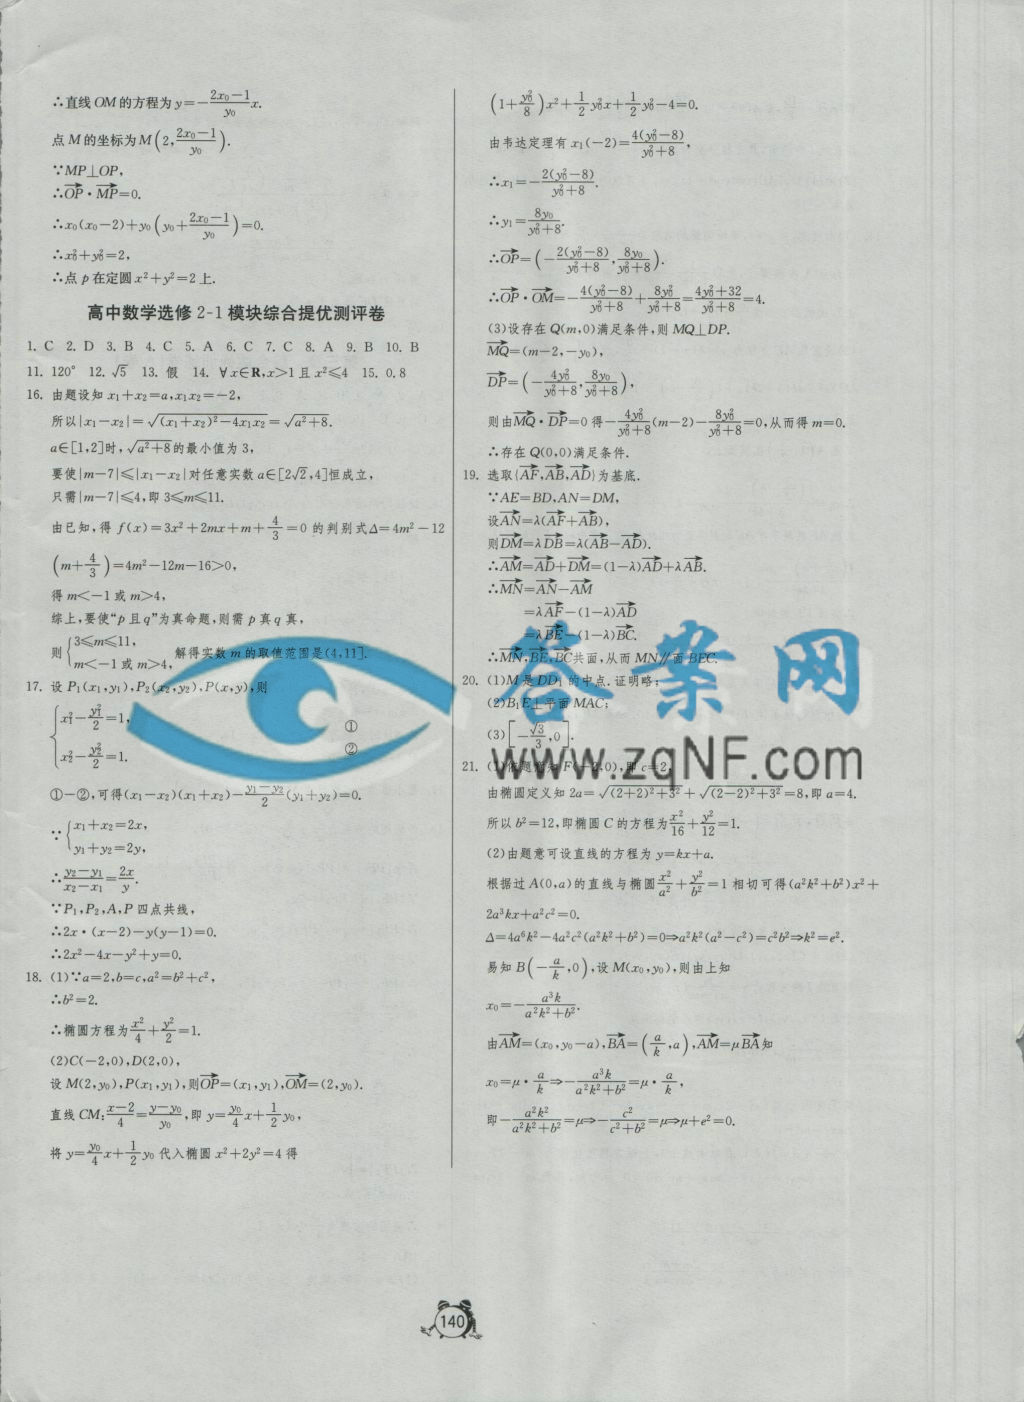 ∴直线OM的方程为y=-\frac{2x₀-1}{y₀}x.
点M的坐标为M(2,\frac{2x₀-1}{y₀}).
∵MP⊥OP,
∴\overrightarrow{OP}·\overrightarrow{MP}=0.
∴x₀(x₀-2)+y₀(y₀+\frac{2x₀-1}{y₀})=0.
∴x₀²+y₀²=2,
∴点p在定圆x²+y²=2上.
高中数学选修2-1模块综合提优测评卷
1. C 2. D 3. B 4. C 5. A 6. C 7. C 8. A 9. B 10. B
11. 120° 12. √5 13. 假 14. ∀x∈R,x>1且x²≤4 15. 0.8
16. 由题设知x₁+x₂=a,x₁x₂=-2,
所以|x₁-x₂|=\sqrt{(x₁+x₂)²-4x₁x₂}=\sqrt{a²+8}.
a∈[1,2]时,\sqrt{a²+8}的最小值为3.
要使|m-7|≤|x₁-x₂|对任意实数a∈[2√2,4]恒成立,
只需|m-7|≤4,即3≤m≤11.
由已知,得f(x)=3x²+2mx+m+\frac{4}{3}=0的判别式Δ=4m²-12
(m+\frac{4}{3})=4m²-12m-16>0,
得m<-1或m>4,
综上,要使“p且q”为真命题,则需p真q真,
则{3≤m≤11, m<-1或m>4, 解得实数m的取值范围是(4,11].
17. 设P₁(x₁,y₁),P₂(x₂,y₂),P(x,y),则
x₁²-\frac{y₁²}{2}=1, ①
x₂²-\frac{y₂²}{2}=1. ②
①-②,可得(x₁-x₂)(x₁+x₂)-\frac{y₁-y₂}{2}(y₁+y₂)=0.
∵{x₁+x₂=2x,
y₁+y₂=2y,
∴\frac{y₂-y₁}{x₂-x₁}=\frac{2x}{y}.
∵P₁,P₂,A,P四点共线,
∴2x·(x-2)-y(y-1)=0.
∴2x²-4x-y²+y=0.
18. (1)∵a=2,b=c,a²=b²+c²,
∴b²=2.
∴椭圆方程为\frac{x²}{4}+\frac{y²}{2}=1.
(2)C(-2,0),D(2,0),
设M(2,y₀),P(x₁,y₁),则\overrightarrow{OP}=(x₁,y₁),\overrightarrow{OM}=(2,y₀).
直线CM:\frac{x-2}{4}=\frac{y-y₀}{y₀},即y=\frac{y₀}{4}x+\frac{1}{2}y₀,
将y=\frac{y₀}{4}x+\frac{1}{2}y₀代入椭圆x²+2y²=4得
(1+\frac{y₀²}{8})x²+\frac{1}{2}y₀²x+\frac{1}{2}y₀²-4=0.
由韦达定理有x₁(-2)=\frac{4(y₀²-8)}{y₀²+8},
∴x₁=-\frac{2(y₀²-8)}{y₀²+8}.
∴y₁=\frac{8y₀}{y₀²+8}.
∴\overrightarrow{OP}=(-\frac{2(y₀²-8)}{y₀²+8},\frac{8y₀}{y₀²+8}).
∴\overrightarrow{OP}·\overrightarrow{OM}=-\frac{4(y₀²-8)}{y₀²+8}+\frac{8y₀²}{y₀²+8}=\frac{4y₀²+32}{y₀²+8}=4.
(3)设存在Q(m,0)满足条件,则MQ⊥DP.
\overrightarrow{MQ}=(m-2,-y₀),
\overrightarrow{DP}=(-\frac{4y₀²}{y₀²+8},\frac{8y₀}{y₀²+8}),
则由\overrightarrow{MQ}·\overrightarrow{DP}=0得-\frac{4y₀²}{y₀²+8}(m-2)-\frac{8y₀²}{y₀²+8}=0,从而得m=0.
∴存在Q(0,0)满足条件.
19. 选取{\overrightarrow{AF},\overrightarrow{AB},\overrightarrow{AD}}为基底.
∵AE=BD,AN=DM,
设\overrightarrow{AN}=λ(\overrightarrow{AF}+\overrightarrow{AB}),
则\overrightarrow{DM}=λ\overrightarrow{DB}=λ(\overrightarrow{AB}-\overrightarrow{AD}).
∴\overrightarrow{AM}=\overrightarrow{AD}+\overrightarrow{DM}=(1-λ)\overrightarrow{AD}+λ\overrightarrow{AB}.
∴\overrightarrow{MN}=\overrightarrow{AN}-\overrightarrow{AM}
=λ\overrightarrow{AF}-(1-λ)\overrightarrow{AD}
=λ\overrightarrow{BE}-(1-λ)\overrightarrow{BC}.
∴\overrightarrow{MN},\overrightarrow{BE},\overrightarrow{BC}共面,从而MN∥面BEC.
20. (1)M是DD₁的中点.证明略;
(2)B₁E⊥平面MAC;
(3)[-\frac{√3}{3},0].
21. (1)依题意知F(-2,0),即c=2,
由椭圆定义知2a=\sqrt{(2+2)²+3²}+\sqrt{(2-2)²+3²}=8,即a=4.
所以b²=12,即椭圆C的方程为\frac{x²}{16}+\frac{y²}{12}=1.
(2)由题意可设直线的方程为y=kx+a.
根据过A(0,a)的直线与椭圆\frac{x²}{a²}+\frac{y²}{b²}=1相切可得(a²k²+b²)x²+
2a³kx+a²c²=0.
Δ=4a⁶k²-4a²c²(a²k²+b²)=0⇒a²k²(a²-c²)=c²b²⇒k²=e².
易知B(-\frac{a}{k},0),设M(x₀,y₀),则由上知
x₀=-\frac{a³k}{a²k²+b²}.
由\overrightarrow{AM}=(x₀,y₀-a),\overrightarrow{BA}=(\frac{a}{k},a),\overrightarrow{AM}=μ\overrightarrow{BA}知
x₀=μ·\frac{a}{k}⇒-\frac{a³k}{a²k²+b²}=μ·\frac{a}{k},
即-\frac{a²k²}{a²k²+b²}=μ⇒-\frac{c²}{c²+b²}=μ⇒μ+e²=0.
答案网
www.zqNF.com
140